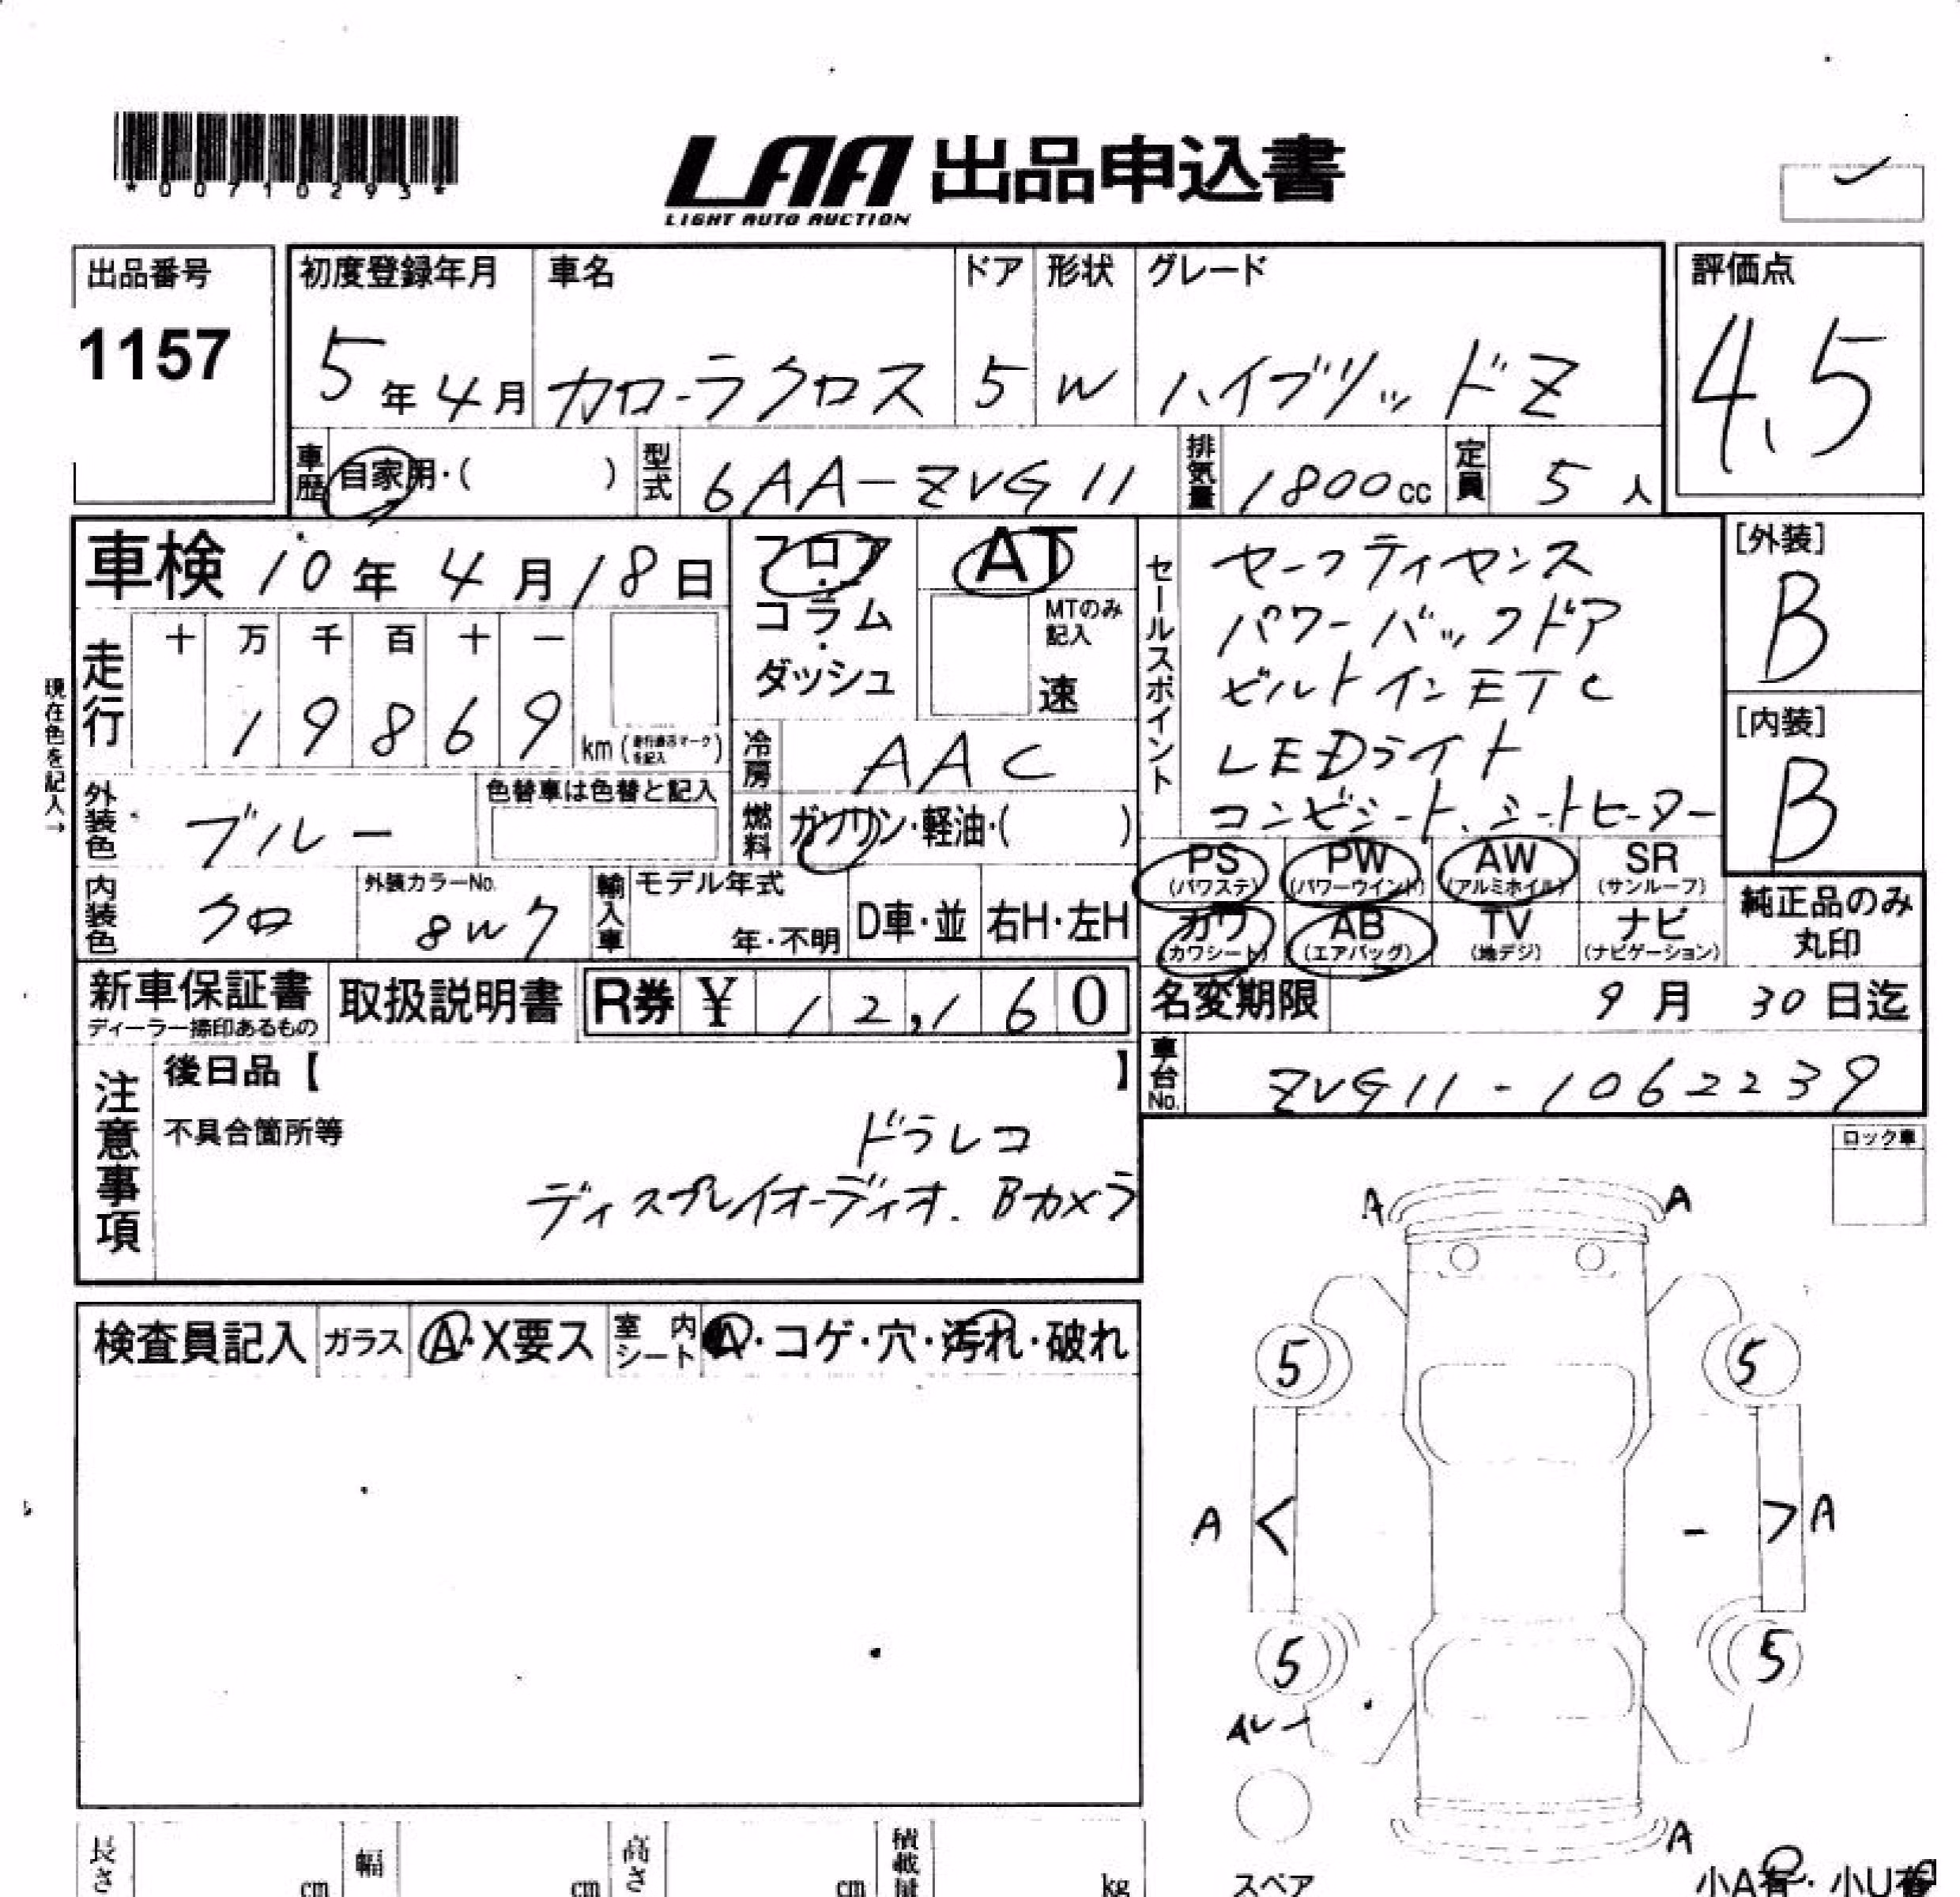 *00710293*
LAA 出品申込書
LIGHT AUTO AUCTION
出品番号
1157
初度登録年月 車名 ドア 形状 グレード
5年4月 カローラクロス 5 W ハイブリッドZ
評価点
4.5
車歴 自家用・( ) 型式 6AA-ZVG11 排気量 1800cc 定員 5人
車検 10年4月18日
フロア・コラム・ダッシュ
AT
MTのみ記入
速
セールスポイント
セーフティセンス
パワーバックドア
ビルトインETC
LEDライト
コンビシート、シートヒーター
[外装]
B
[内装]
B
現在色を記入→
走行 十 万 千 百 十 一
1 9 8 6 9 km
冷房 AAC
外装色 ブルー 色替車は色替と記入
燃料 ガソリン・軽油・( )
内装色 クロ 外装カラーNo. 8W7
輸入車 モデル年式 年・不明 D車・並 右H・左H
PS (パワステ) PW (パワーウインド) AW (アルミホイル) SR (サンルーフ)
カワ (カワシート) AB (エアバッグ) TV (地デジ) ナビ (ナビゲーション)
純正品のみ
丸印
新車保証書 取扱説明書 R券 ¥ 12,160
ディーラー捺印あるもの
名変期限 9月30日迄
車台No. ZVG11-1062239
注意事項
後日品【 】
不具合箇所等
ドラレコ
ディスプレイオーディオ. Bカメラ
ロック車
検査員記入 ガラス A・X要ス 室内シート A・コゲ・穴・汚れ・破れ
A A
5 5
A < - > A
5 5
A
スペア
長さ cm 幅 cm 高さ cm 積載量 kg
小A有・小U有